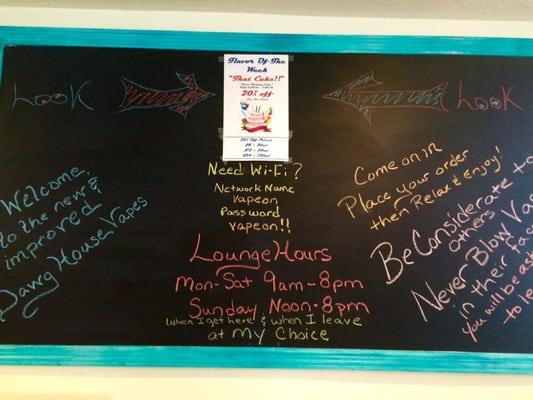 Look
Look
Flavor Of The
Week
"That Cake!!"
20% off
Need Wi-Fi?
Network Name
vapeon
Password
vapeon!!
Lounge Hours
Mon-Sat 9am-8pm
Sunday Noon-8pm
when I get here & when I leave
at my Choice
Welcome,
to the new &
improved
Dawg House Vapes
Come on in
Place your order
then Relax & Enjoy!
Be Considerate to
others
Never Blow
in their
you will be
to